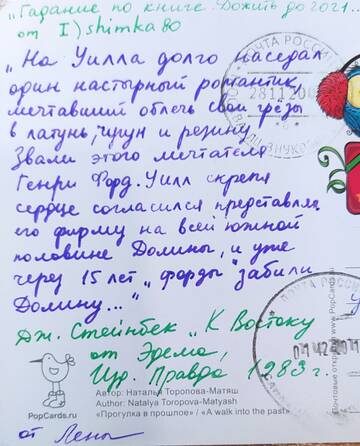 "Гадание по книге. Дожить до 2021...
от I)shimka80
"На Уилла долго наседал
один настырный романтик,
мечтавший облечь свои грёзы
в латунь, чугун и резину.
Звали этого мечтателя
Генри Форд. Уилл скрепя
сердце согласился представлять
его фирму на всей южной
половине Долины, и уже
через 15 лет "форды" забили
Долину..."
Дж. Стейнбек "К Востоку
от Эдема,
Изд. Правда 1983 г.
от Лены
ПОЧТА РОССИИ
28112
PopCards.ru
Автор: Наталья Торопова-Матяш
Author: Natalya Toropova-Matyash
«Прогулка в прошлое» / «A walk into the past»
www.PopCards.ru
ПОЧТА РОССИИ